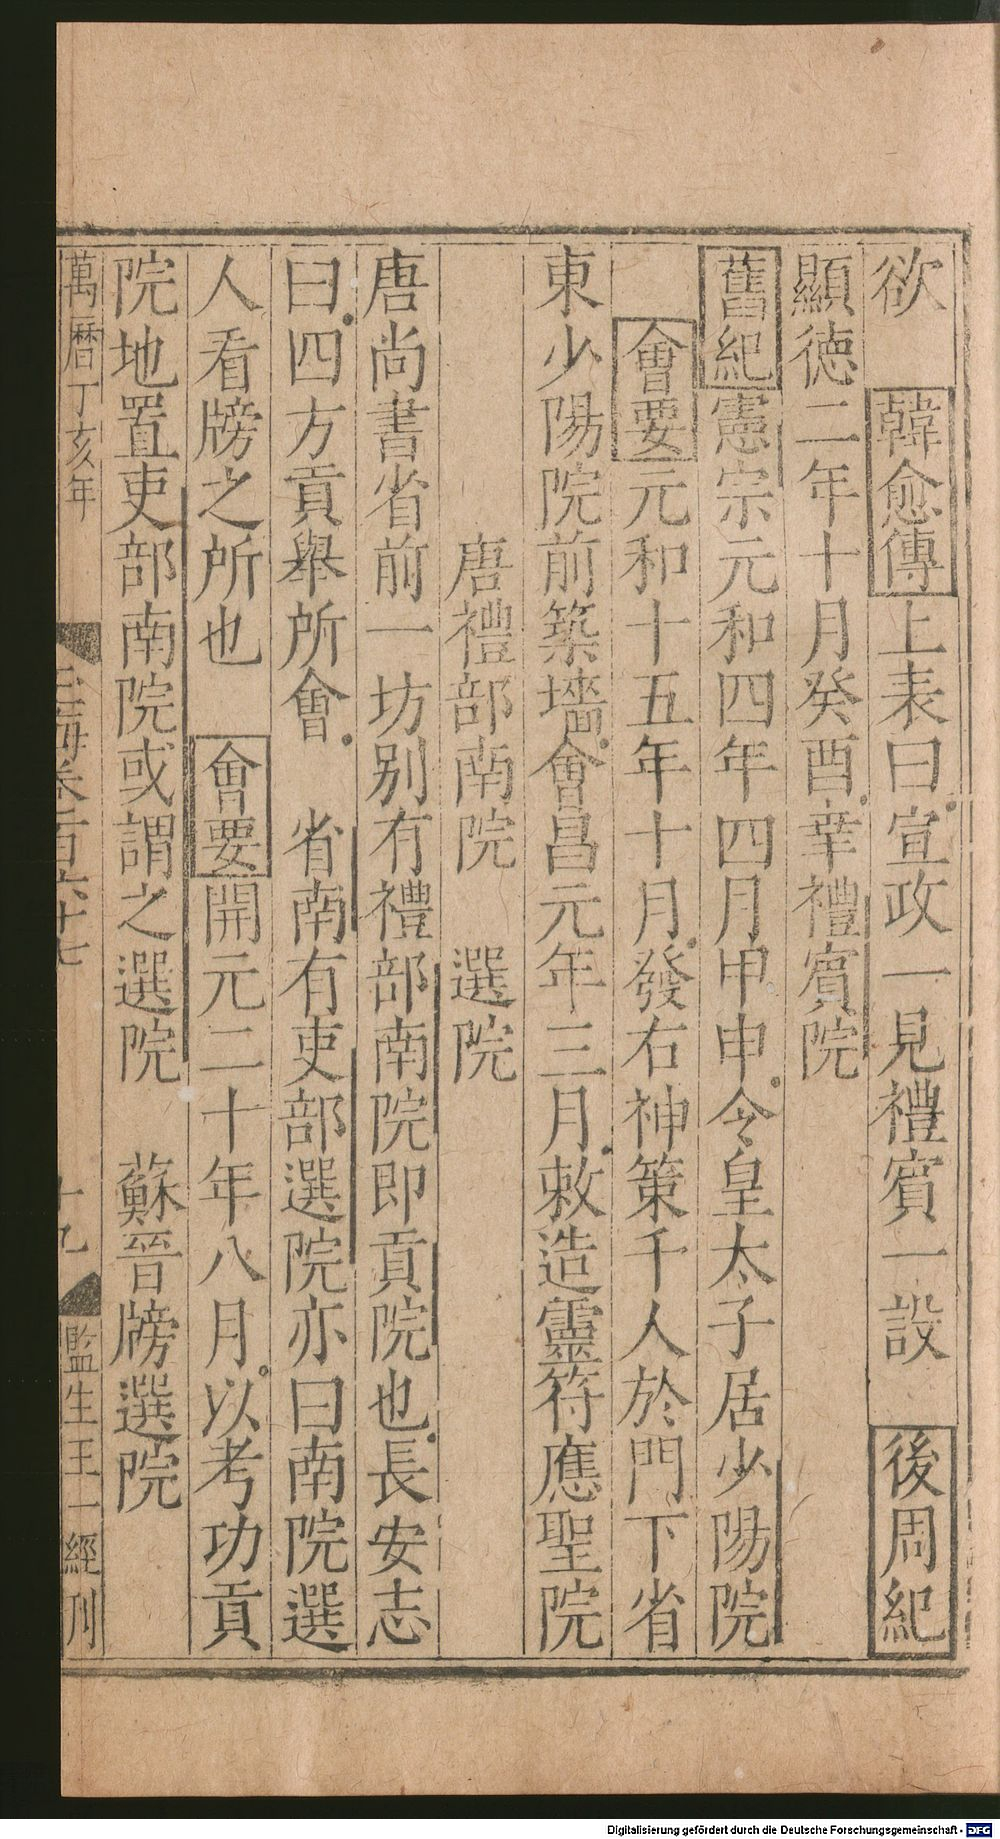 欲　韓愈傳上表曰宣政一見禮賓一設　後周紀
顯徳二年十月癸酉幸禮賓院
舊紀憲宗元和四年四月甲申令皇太子居少陽院
會要元和十五年十月發右神策千人於門下省
東少陽院前築墻會昌元年三月敕造靈符應聖院
唐禮部南院　選院
唐尚書省前一坊別有禮部南院即貢院也長安志
曰四方貢舉所會　省南有吏部選院亦曰南院選
人看牓之所也　會要開元二十年八月以考功貢
院地置吏部南院或謂之選院　蘇晉牓選院
萬曆丁亥年　玉海卷一百六十七　十九　監生王一經刋
Digitalisierung gefördert durch die Deutsche Forschungsgemeinschaft - DFG